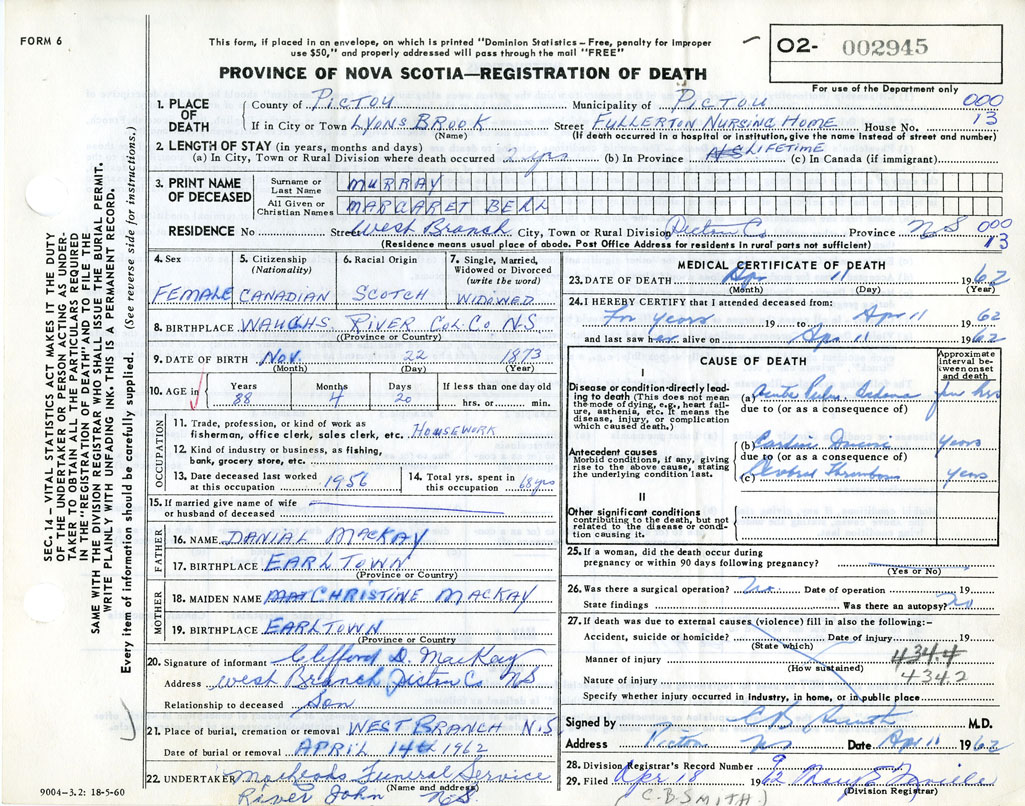 FORM 6
This form, if placed in an envelope, on which is printed "Dominion Statistics – Free, penalty for improper
use $50," and properly addressed will pass through the mail "FREE"
PROVINCE OF NOVA SCOTIA—REGISTRATION OF DEATH
O2- 002945
For use of the Department only
1. PLACE OF DEATH County of PICTOU Municipality of PICTOU 000
If in City or Town LYONS BROOK Street FULLERTON NURSING HOME House No. 13
(Name) (If death occurred in a hospital or institution, give the name instead of street and number)
2. LENGTH OF STAY (in years, months and days)
(a) In City, Town or Rural Division where death occurred 2 yrs (b) In Province LIFETIME (c) In Canada (if immigrant)
3. PRINT NAME OF DECEASED Surname or Last Name MURRAY
All Given or Christian Names MARGARET BELL
RESIDENCE No Street West Branch City, Town or Rural Division Pictou Co Province NS 000
(Residence means usual place of abode. Post Office Address for residents in rural parts not sufficient) 13
4. Sex FEMALE
5. Citizenship (Nationality) CANADIAN
6. Racial Origin SCOTCH
7. Single, Married, Widowed or Divorced (write the word) WIDOWED
8. BIRTHPLACE WAUGHS RIVER COL. CO N.S
(Province or Country)
9. DATE OF BIRTH Nov. 22 1873
(Month) (Day) (Year)
10. AGE in Years 88 Months 4 Days 20 If less than one day old hrs. or min.
OCCUPATION
11. Trade, profession, or kind of work as
fisherman, office clerk, sales clerk, etc. HOUSEWORK
12. Kind of industry or business, as fishing,
bank, grocery store, etc.
13. Date deceased last worked at this occupation 1956
14. Total yrs. spent in this occupation 68 yrs
15. If married give name of wife
or husband of deceased
FATHER
16. NAME DANIAL MACKAY
17. BIRTHPLACE EARLTOWN
(Province or Country)
MOTHER
18. MAIDEN NAME CHRISTINE MACKAY
19. BIRTHPLACE EARLTOWN
(Province or Country)
20. Signature of informant Clifford D. MacKay
Address West Branch Pictou Co NS
Relationship to deceased Son
21. Place of burial, cremation or removal WEST BRANCH N.S
Date of burial or removal APRIL 14th 1962
22. UNDERTAKER Macleods Funeral Service
(Name and address)
River John N.S.
9004–3.2: 18-5-60
MEDICAL CERTIFICATE OF DEATH
23. DATE OF DEATH Apr 11 1962
(Month) (Day) (Year)
24. I HEREBY CERTIFY that I attended deceased from:
For years 19 to Apr 11 1962
and last saw h alive on Apr 11 1962
CAUSE OF DEATH
Approximate interval between onset and death
I
Disease or condition directly leading to death (This does not mean the mode of dying, e.g., heart failure, asthenia, etc. It means the disease, injury, or complication which caused death.)
(a) Acute Pulm. Oedema few hrs
due to (or as a consequence of)
Antecedent causes
Morbid conditions, if any, giving rise to the above cause, stating the underlying condition last.
(b) Cardiac Disease years
due to (or as a consequence of)
(c) Cerebral Thrombosis years
II
Other significant conditions
contributing to the death, but not related to the disease or condition causing it.
25. If a woman, did the death occur during
pregnancy or within 90 days following pregnancy?
(Yes or No)
26. Was there a surgical operation? No Date of operation 19
State findings Was there an autopsy? No
27. If death was due to external causes (violence) fill in also the following:-
Accident, suicide or homicide? Date of injury 19
(State which)
Manner of injury 434.4
(How sustained)
Nature of injury 434.2
Specify whether injury occurred in industry, in home, or in public place
Signed by C B Smith M.D.
Address Pictou NS Date Apr 11 1962
28. Division Registrar's Record Number 9
29. Filed Apr 18 1962
(Division Registrar)
(C.B. SMITH.)
SEC. 14 – VITAL STATISTICS ACT MAKES IT THE DUTY
OF THE UNDERTAKER OR PERSON ACTING AS UNDER-
TAKER TO OBTAIN ALL THE PARTICULARS REQUIRED
IN THE "REGISTRATION OF DEATH" AND TO FILE THE
SAME WITH THE DIVISION REGISTRAR WHO SHALL ISSUE THE BURIAL PERMIT.
WRITE PLAINLY WITH UNFADING INK. THIS IS A PERMANENT RECORD.
Every item of information should be carefully supplied. (See reverse side for instructions.)